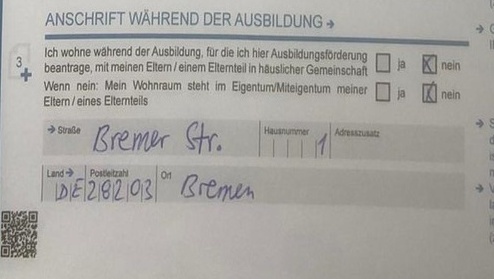 ANSCHRIFT WÄHREND DER AUSBILDUNG →
3
Ich wohne während der Ausbildung, für die ich hier Ausbildungsförderung
beantrage, mit meinen Eltern / einem Elternteil in häuslicher Gemeinschaft ja nein
Wenn nein: Mein Wohnraum steht im Eigentum/Miteigentum meiner
Eltern / eines Elternteils ja nein
→ Straße Hausnummer Adresszusatz
Bremer Str. 1
Land → Postleitzahl Ort
DE 28203 Bremen